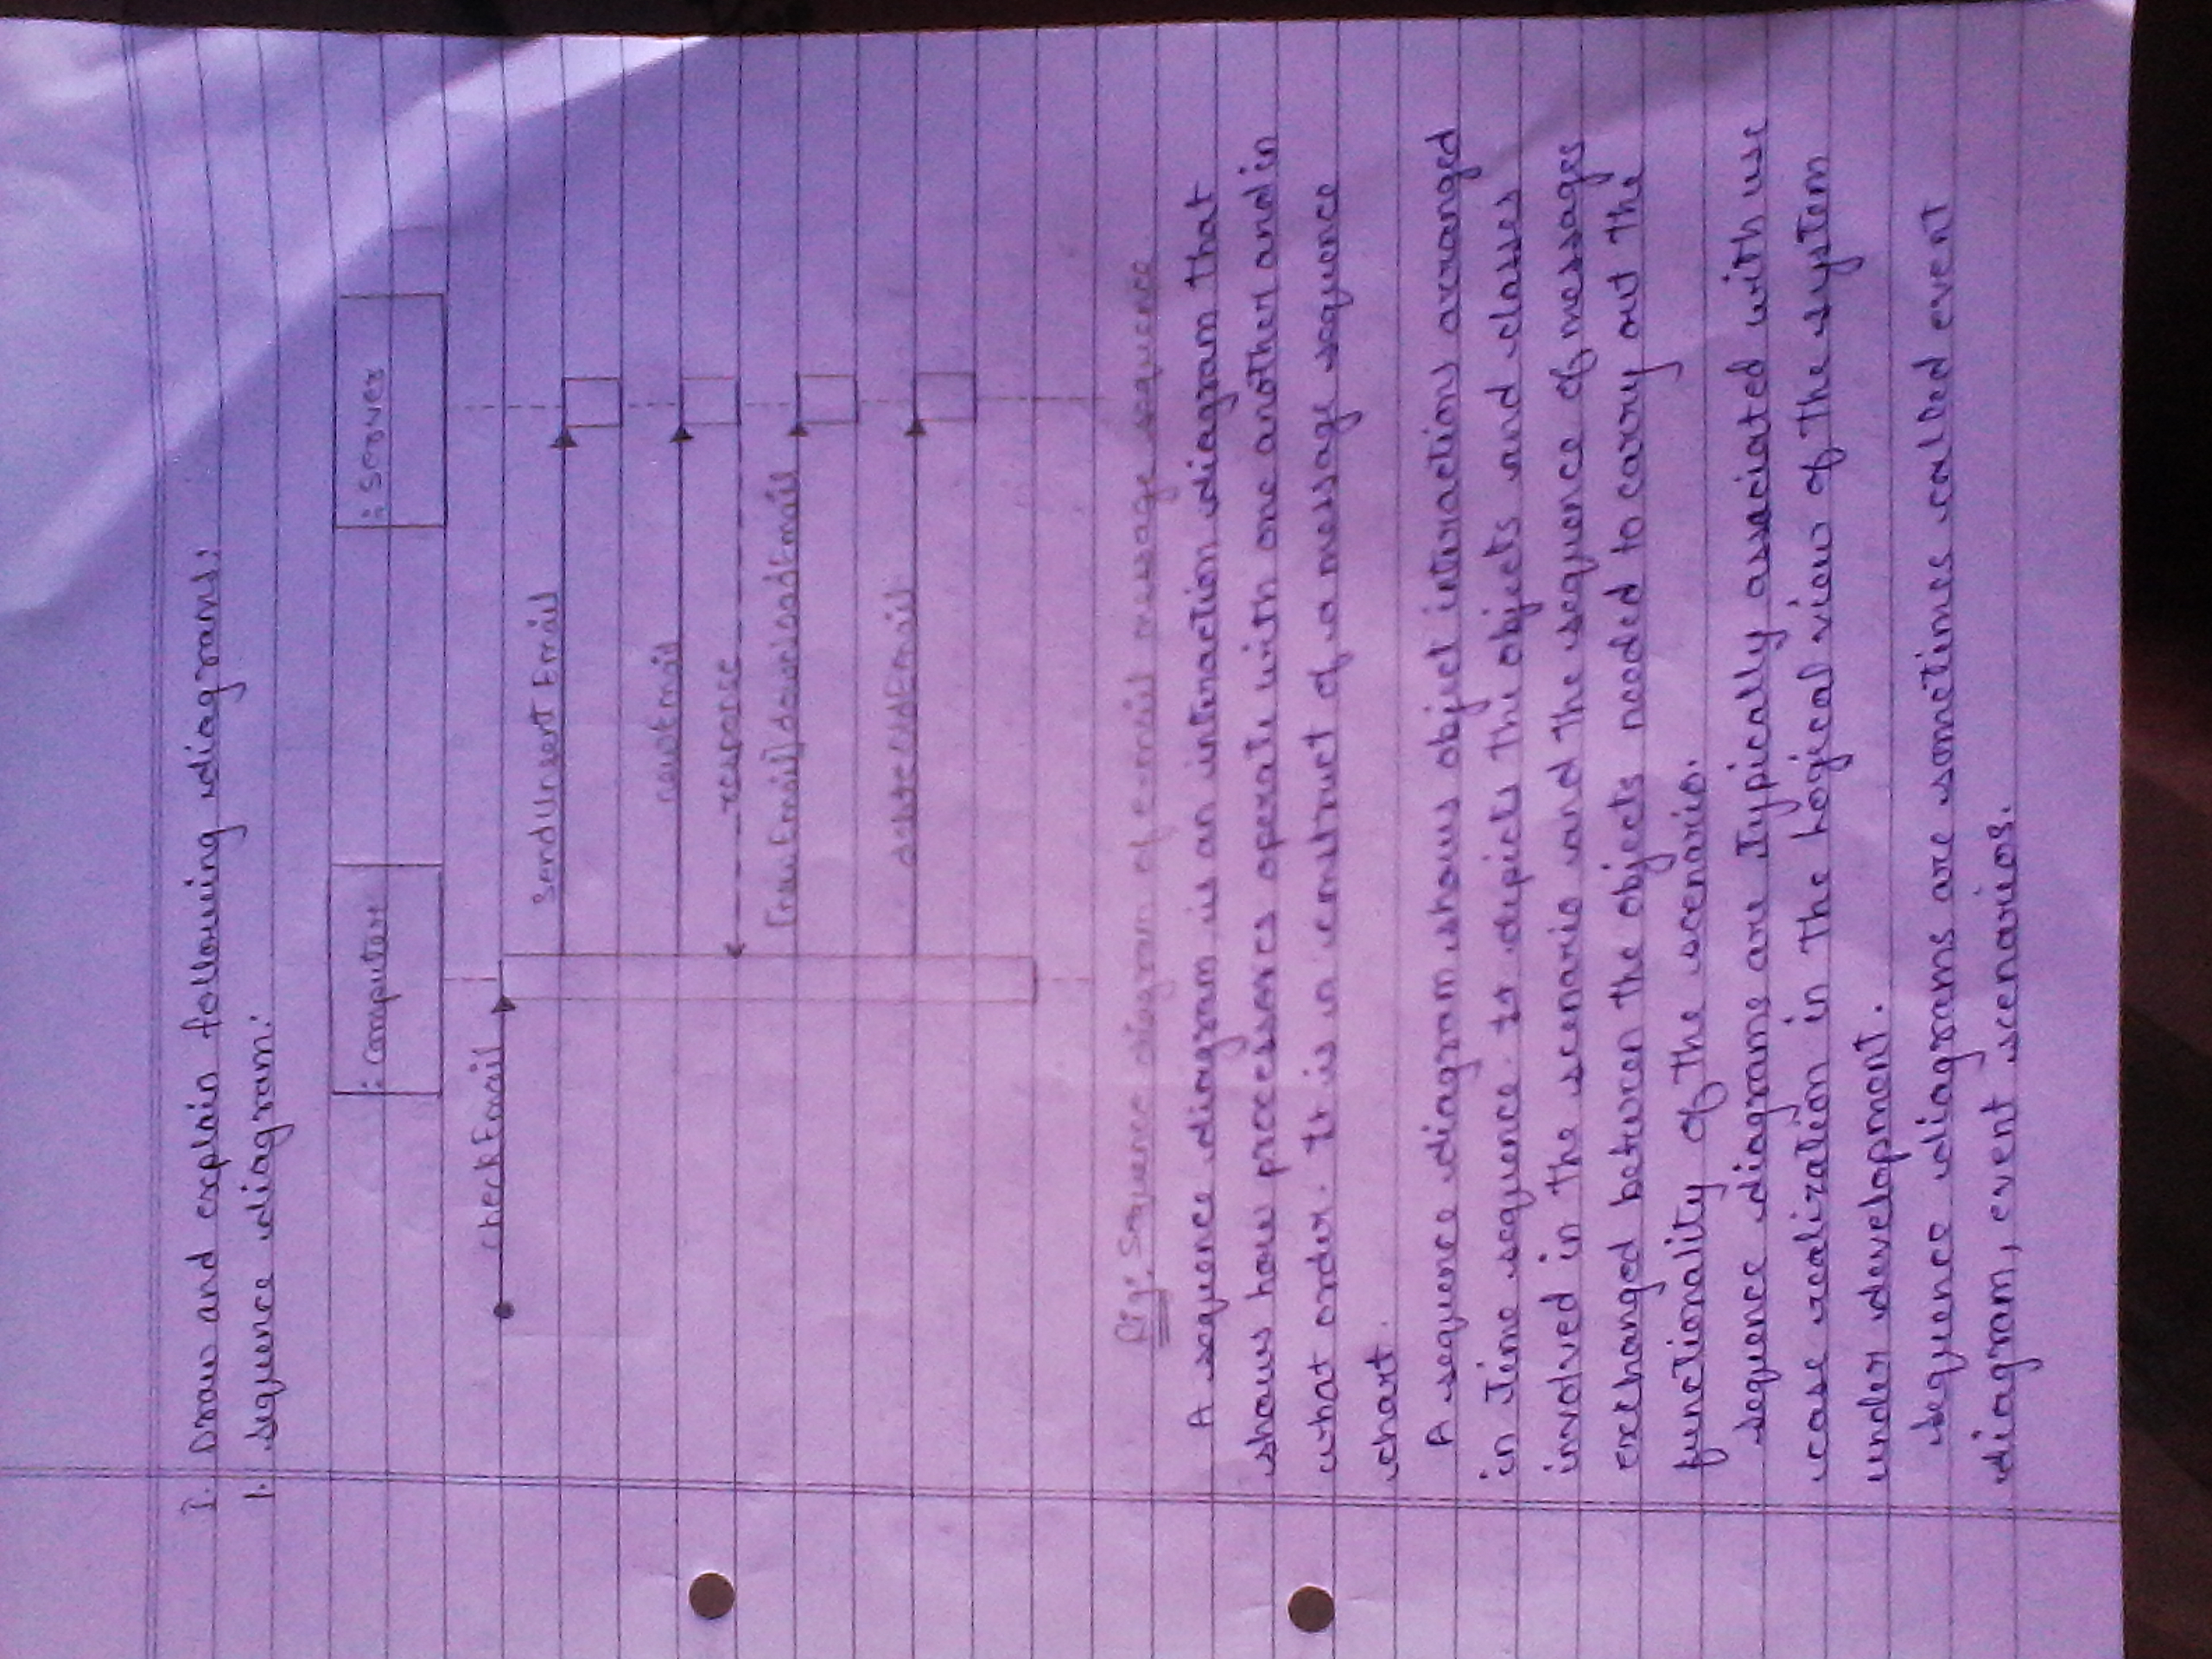 I. Draw and explain following diagrams:
1. Sequence diagram:
: Computer
: Server
checkEmail
SendUnsentEmail
newEmail
response
[newEmail] downloadEmail
deleteOldEmail
fig: Sequence diagram of e-mail message sequence
A sequence diagram is an interaction diagram that
shows how processes operate with one another and in
what order. It is a construct of a message sequence
chart.
A sequence diagram shows object interactions arranged
in Time sequence. It depicts the objects and classes
involved in the scenario and the sequence of messages
exchanged between the objects needed to carry out the
functionality of the scenario.
Sequence diagrams are Typically associated with use
case realization in the Logical view of the system
under development.
Sequence diagrams are sometimes called event
diagram, event scenarios.